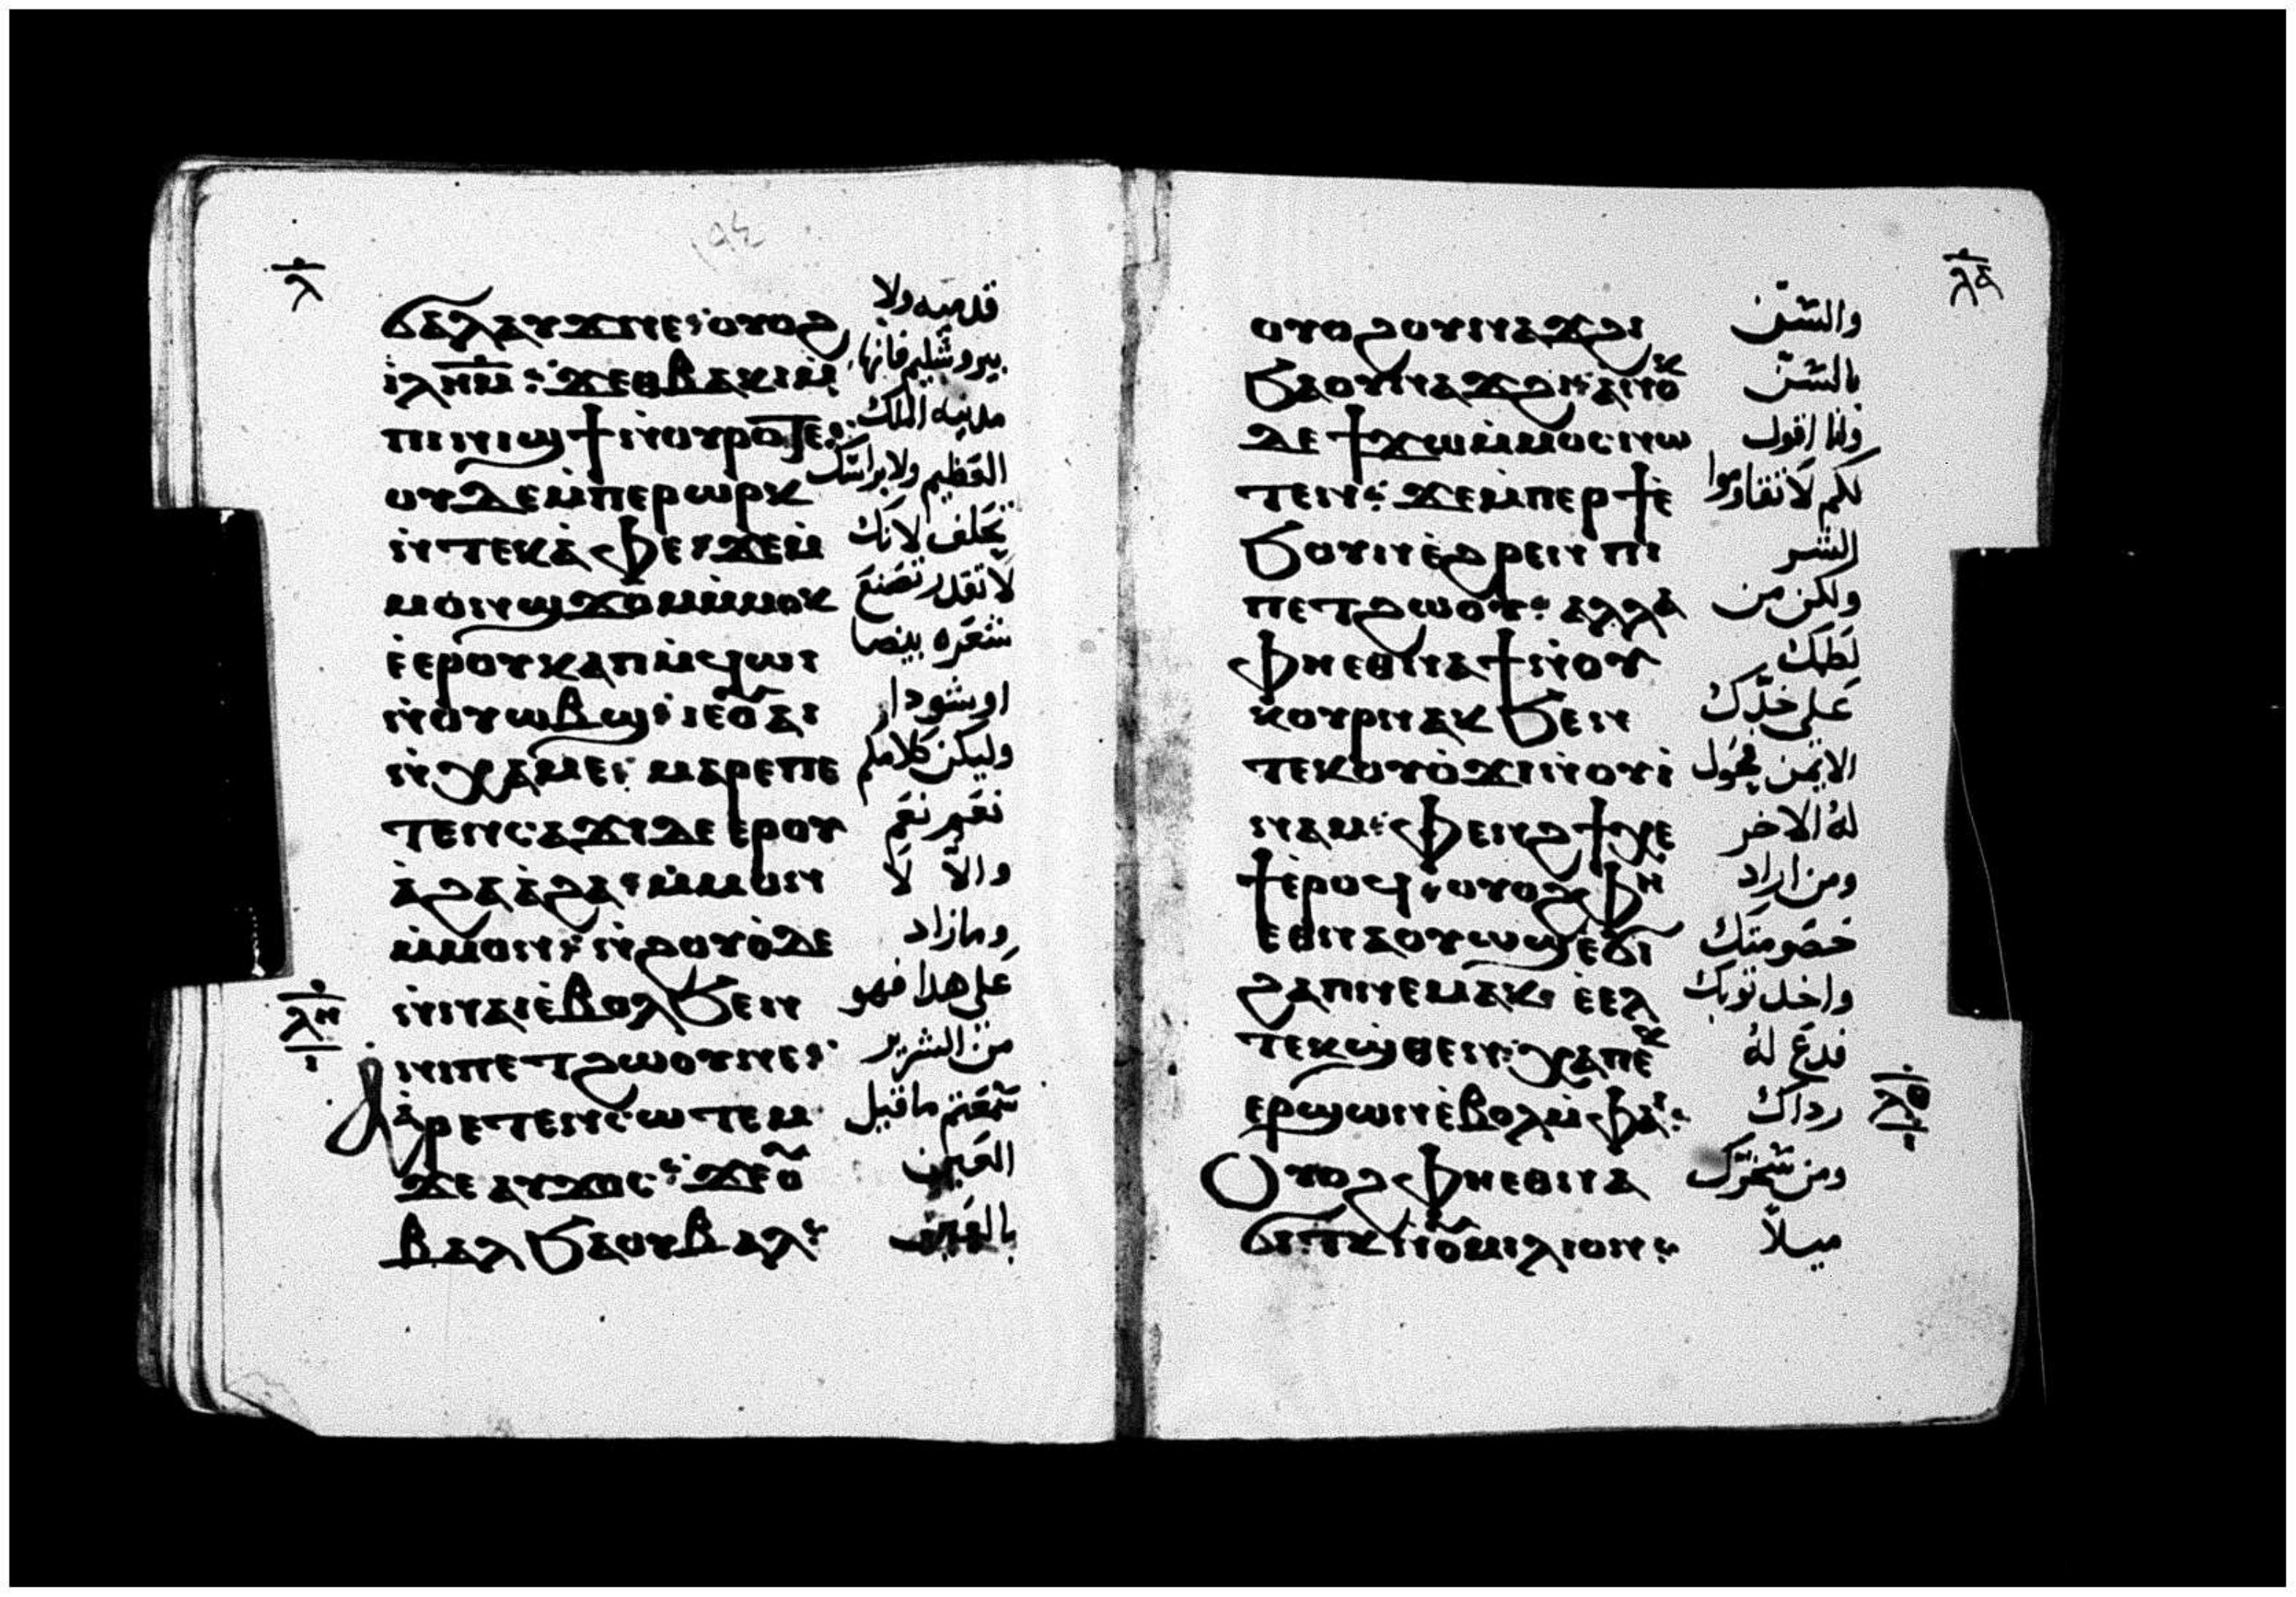 ⲗ̅
ϭⲁⲗⲁⲩϫⲡⲉ: ⲟⲩⲟϩ قدميه ولا
ⲓⲗⲏ̅ⲙ̅: ϫⲉⲑⲃⲁⲕⲓⲙ̀ بيروشليم فانها
ⲡⲓⲛⲓϣϯⲛ̀ⲟⲩⲣⲟⲧⲉ: مدينه الملك
ⲟⲩⲇⲉⲙ̀ⲡⲉⲣⲱⲣⲕ العظيم ولا براسك
ⲛ̀ⲧⲉⲕⲁ̀ⲫⲉ: ϫⲉⲙ تحلف لانك
ⲙⲟⲛϣϫⲟⲙⲙ̀ⲙⲟⲕ لا تقدر تصنع
ⲉ̀ⲉⲣⲟⲩⲕⲁⲡⲙ̀ϥⲱⲓ شعره بيضا
ⲛ̀ⲟⲩⲱⲃϣ: ⲓⲉⲟ̅ⲁⲓ او سودا
ⲛ̀ⲭⲁⲙⲉ: ⲙⲁⲣⲉⲡⲉ وليكن كلامكم
ⲧⲉⲛⲥⲁϫⲓⲇⲉⲉⲣⲟⲩ نعم نعم
ⲁ̀ϩⲁⲁ̀ϩⲁ: ⲙ̀ⲙⲟⲛ والا لا
ⲙ̀ⲙⲟⲛ: ⲛ̀ϩⲟⲩⲟ̀ⲇⲉ وما زاد
ⲛ̀ⲛⲁⲓⲉ̀ⲃⲟⲗϧⲉⲛ على هدا فهو
ⲗⲏ̅ ⲓ̅
ⲛⲓⲡⲉⲧϩⲱⲟⲩⲛⲉ: من الشرير
ⲁ̀ⲣⲉⲧⲉⲛⲥⲱⲧⲉⲙ سمعتم ما قيل
ϫⲉⲁⲩϫⲟⲥ: ϫⲉⲟ̅ العين
ⲃⲁⲗϧⲁⲟⲩⲃⲁⲗ: بالعين
ⲗⲁ̅
ⲟⲩⲟϩⲟⲩⲛⲁϫϩⲓ والسن
ϧⲁⲟⲩⲛⲁϫϩⲓ: ⲁⲛⲟⲕ بالسن
ⲇⲉϯϫⲱⲙ̀ⲙⲟⲥⲛⲱ وانا اقول
ⲧⲉⲛ: ϫⲉⲙ̀ⲡⲉⲣϯⲉ̀ لكم لا تقاوموا
ϧⲟⲩⲛⲉ̀ϩⲣⲉⲛⲡⲓ الشر
ⲡⲉⲧϩⲱⲟⲩ: ⲁⲗⲗⲁ̀ ولكن من
ⲫⲏⲉⲑⲛⲁϯⲛ̀ⲟⲩ لطمك
ⲕⲟⲩⲣⲛⲁⲕϧⲉⲛ على خدك
ⲧⲉⲕⲟⲩⲟ̀ϫⲓⲛ̀ⲟⲩⲓ̀ الايمن فحول
ⲛⲁⲙ: ⲫⲉⲛϩϯⲭⲉ له الاخر
ϯⲉ̀ⲣⲟϥ: ⲟⲩⲟϩⲫⲏ ومن اراد
ⲉⲑⲛⲁⲟⲩⲱϣⲉ̀ϭⲓ خصومتك
ϩⲁⲡⲛⲉⲙⲁⲕ: ⲉ̀ⲉⲗ واخد ثوبك
ⲧⲉⲕϣⲑⲉⲛ: ⲭⲁⲡⲉⲕ فدع له
ⲗⲑ̅ ⲓ̅
ⲉⲣϣⲱⲛⲉ̀ⲃⲟⲗⲙ̀ⲫⲁⲓ: رداك
ⲟⲩⲟϩⲫⲏⲉⲑⲛⲁ ومن سخرك
ϭⲓⲧⲕⲛ̀ⲟ̅ⲙⲓⲗⲓⲟⲛ: ميلا